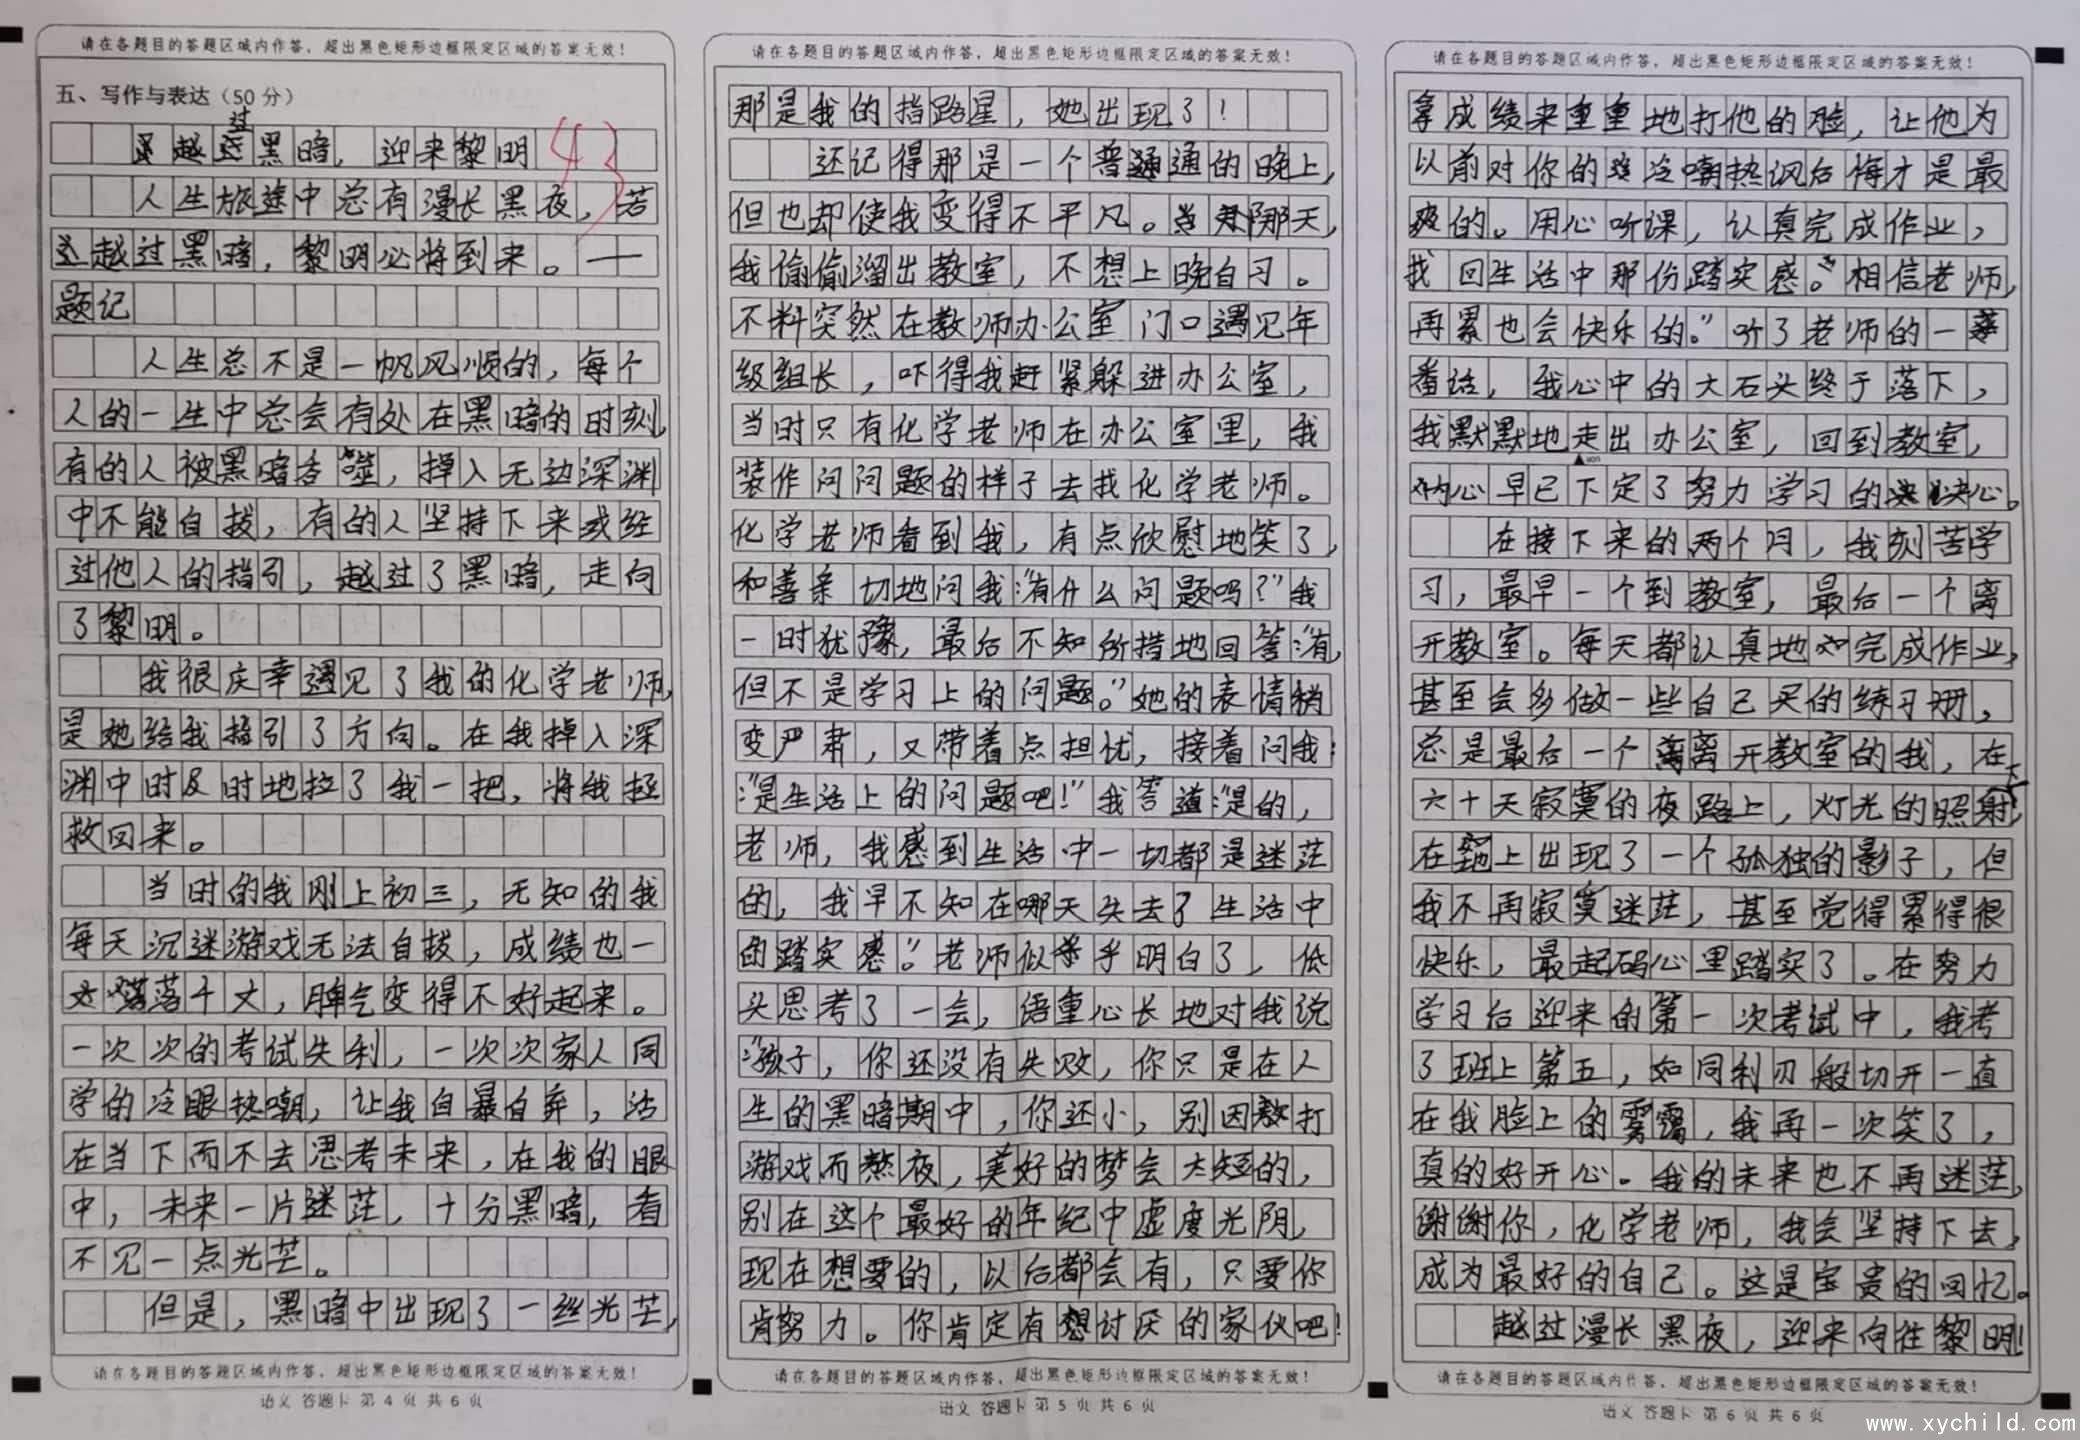 请在各题目的答题区域内作答，超出黑色矩形边框限定区域的答案无效！
五、写作与表达（50分）
越过黑暗，迎来黎明
43
人生旅途中总有漫长黑夜，若
越过黑暗，黎明必将到来。——
题记
人生总不是一帆风顺的，每个
人的一生中总会有处在黑暗的时刻，
有的人被黑暗吞噬，掉入无边深渊
中不能自拔，有的人坚持下来或经
过他人的指引，越过了黑暗，走向
了黎明。
我很庆幸遇见了我的化学老师，
是她给我指引了方向。在我掉入深
渊中时及时地拉了我一把，将我拯
救回来。
当时的我刚上初三，无知的我
每天沉迷游戏无法自拔，成绩也一
落千丈，脾气变得不好起来。
一次次的考试失利，一次次家人同
学的冷眼热嘲，让我自暴自弃，活
在当下而不去思考未来，在我的眼
中，未来一片迷茫，十分黑暗，看
不见一点光芒。
但是，黑暗中出现了一丝光芒，
请在各题目的答题区域内作答，超出黑色矩形边框限定区域的答案无效！
语文 答题卡 第 4 页 共 6 页
请在各题目的答题区域内作答，超出黑色矩形边框限定区域的答案无效！
那是我的指路星，她出现了！
还记得那是一个普通的晚上，
但也却使我变得不平凡。那天，
我偷偷溜出教室，不想上晚自习。
不料突然在教师办公室门口遇见年
级组长，吓得我赶紧躲进办公室，
当时只有化学老师在办公室里，我
装作问问题的样子去找化学老师。
化学老师看到我，有点欣慰地笑了，
和善亲切地问我：“有什么问题吗？”我
一时犹豫，最后不知所措地回答：“有，
但不是学习上的问题。”她的表情稍
变严肃，又带着点担忧，接着问我：
“是生活上的问题吧！”我答道：“是的，
老师，我感到生活中一切都是迷茫
的，我早不知在哪天失去了生活中
的踏实感。”老师似乎明白了，低
头思考了一会，语重心长地对我说
：“孩子，你还没有失败，你只是在人
生的黑暗期中，你还小，别因打
游戏而熬夜，美好的梦会太短的，
别在这个最好的年纪中虚度光阴，
现在想要的，以后都会有，只要你
肯努力。你肯定有想讨厌的家伙吧！
请在各题目的答题区域内作答，超出黑色矩形边框限定区域的答案无效！
语文 答题卡 第 5 页 共 6 页
请在各题目的答题区域内作答，超出黑色矩形边框限定区域的答案无效！
拿成绩来重重地打他的脸，让他为
以前对你的冷嘲热讽后悔才是最
爽的。用心听课，认真完成作业，
找回生活中那份踏实感。”相信老师，
再累也会快乐的。”听了老师的一
番话，我心中的大石头终于落下，
我默默地走出办公室，回到教室，
内心早已下定了努力学习的决心。
在接下来的两个月，我刻苦学
习，最早一个到教室，最后一个离
开教室。每天都认真地完成作业，
甚至会多做一些自己买的练习册，
总是最后一个离开教室的我，在
六十天寂寞的夜路上，灯光的照射下，
在地上出现了一个孤独的影子，但
我不再寂寞迷茫，甚至觉得累得很
快乐，最起码心里踏实了。在努力
学习后迎来的第一次考试中，我考
了班上第五，如同利刃般切开一直
在我脸上的雾霭，我再一次笑了，
真的好开心。我的未来也不再迷茫，
谢谢你，化学老师，我会坚持下去，
成为最好的自己。这是宝贵的回忆。
越过漫长黑夜，迎来向往黎明！
请在各题目的答题区域内作答，超出黑色矩形边框限定区域的答案无效！
语文 答题卡 第 6 页 共 6 页
www.xychild.com